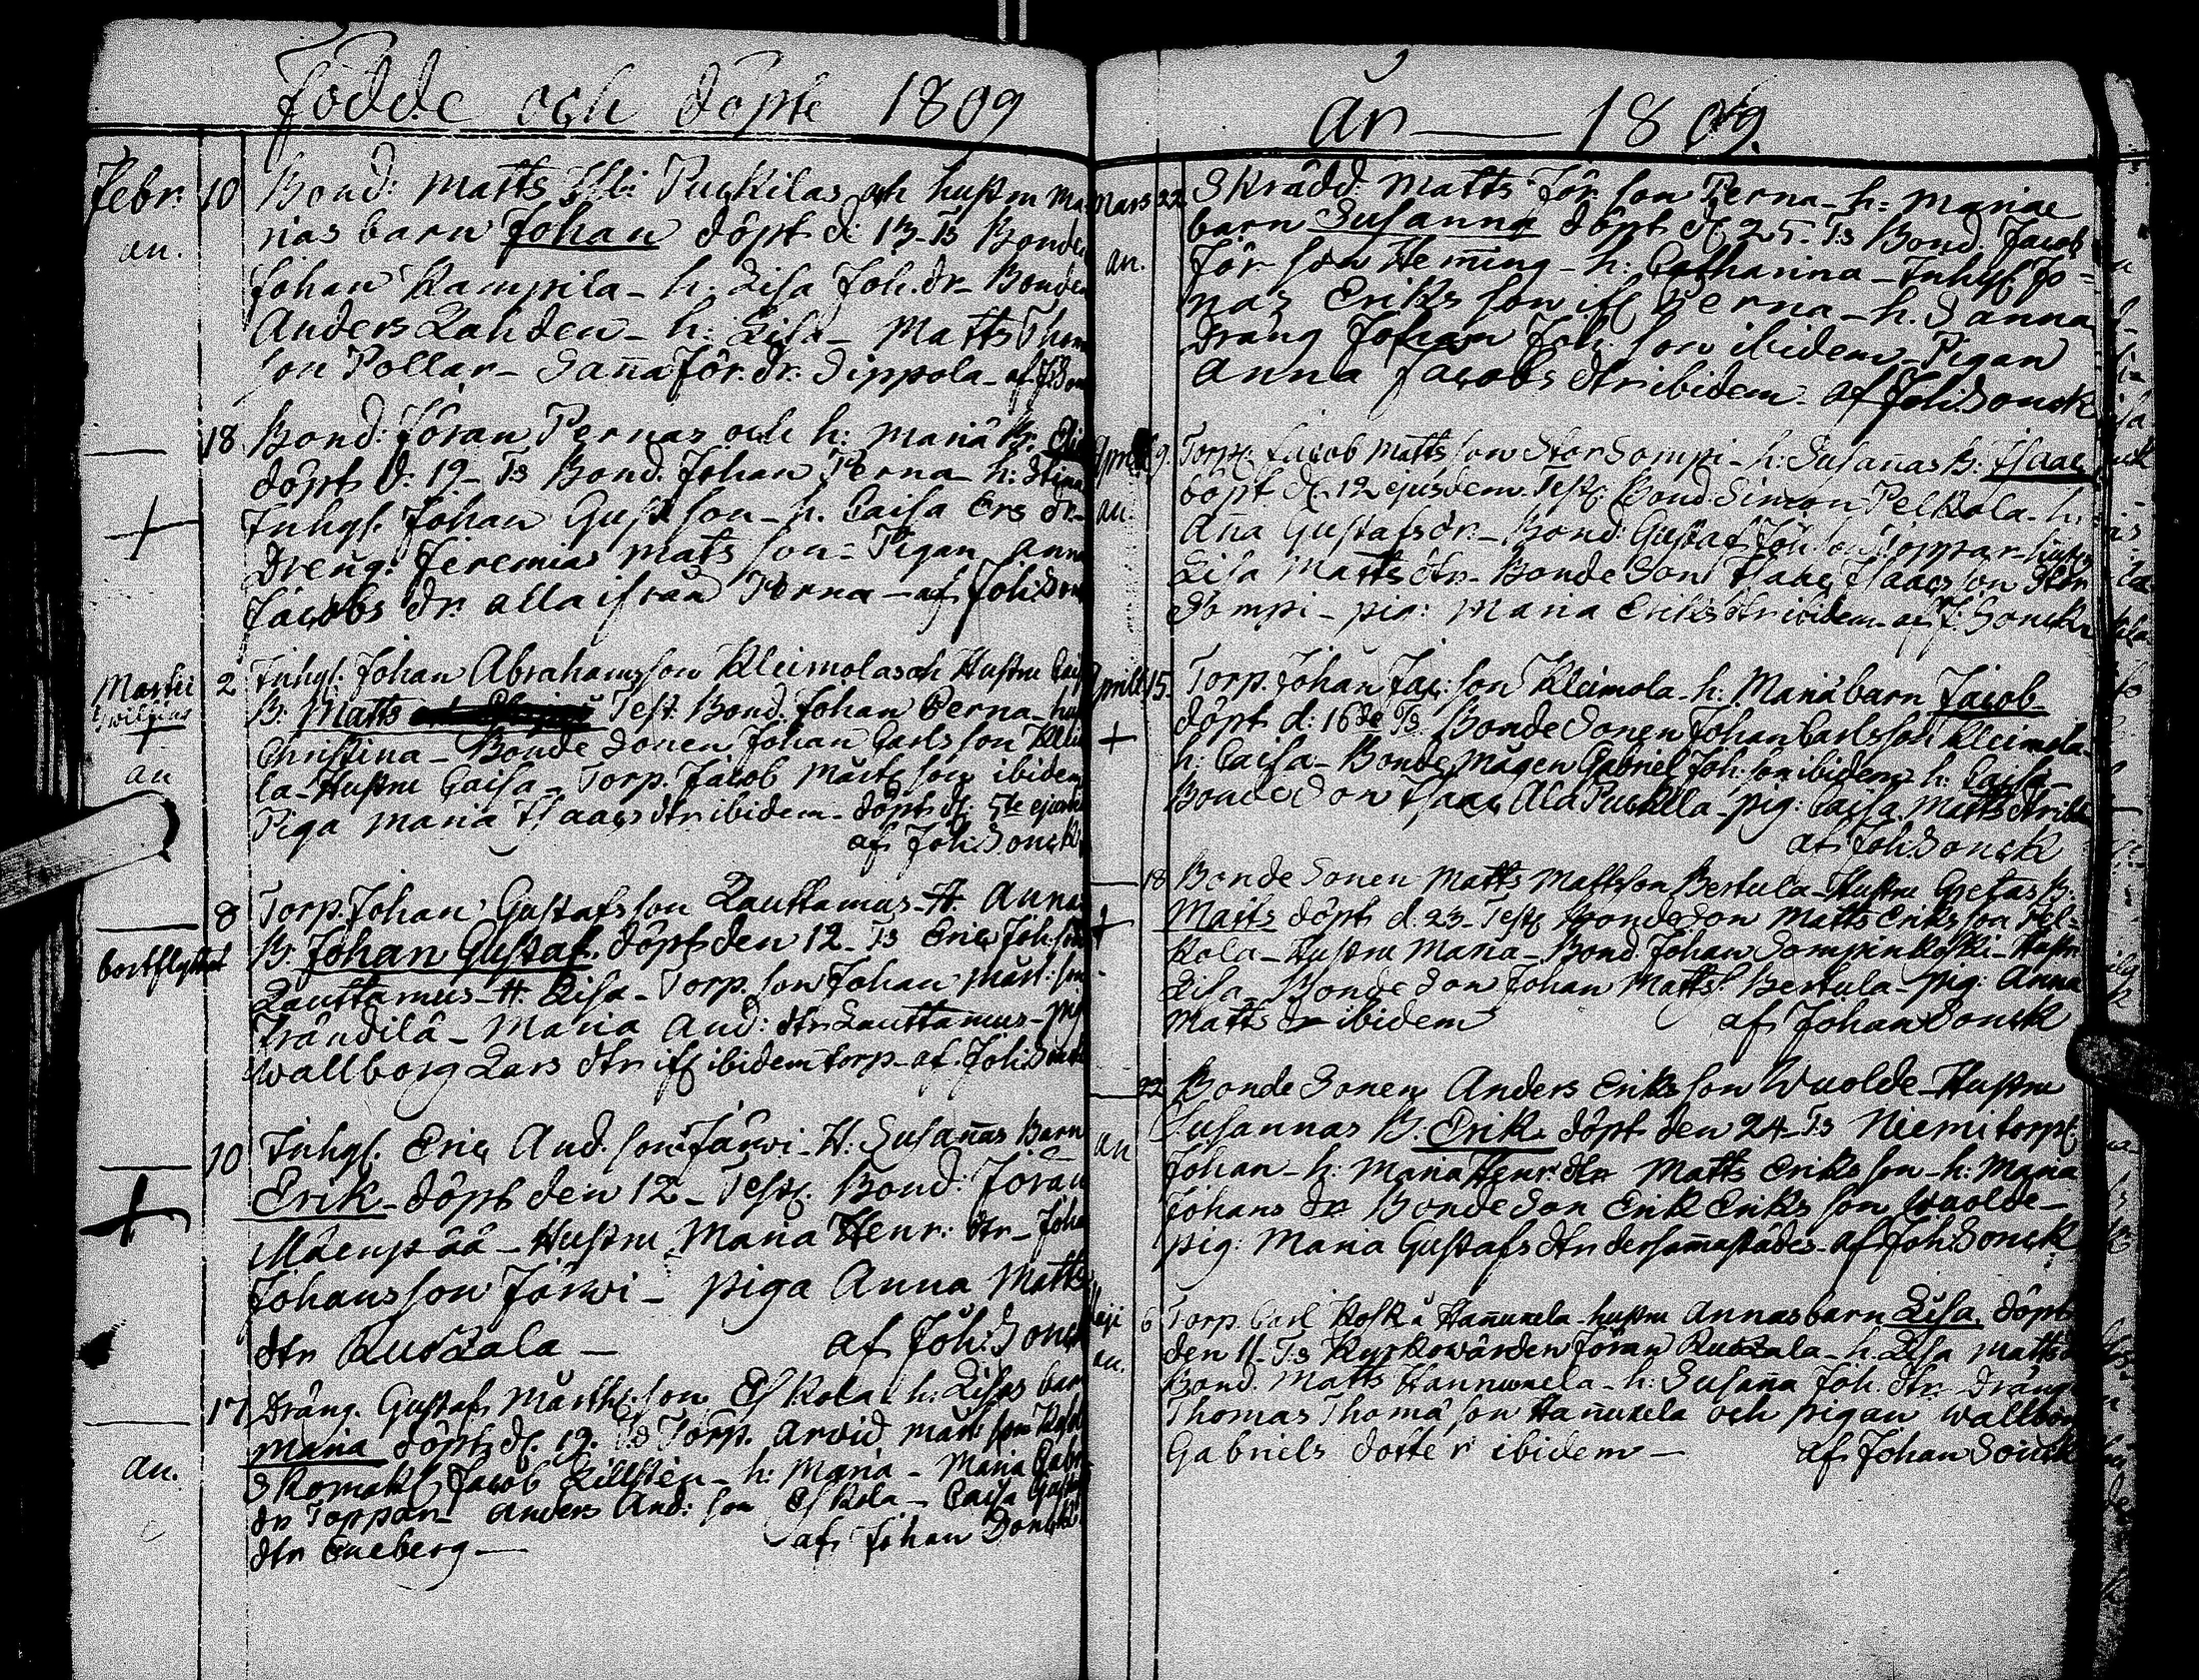 Födde och döpte 1809
Febr. 10 Bond: Matts Puckilas och hustru Ma
an. rias barn Johan döpt d: 13 Ts Bonde
Johan Kampila - h: Lisa Joh. dr - Bonde
Anders Lahden - h: Lisa - Matts Thom
son Pollari - Sanna Jör. dr. Sippola - af
18 Bond: Jöran Pernas och h: Mariä B:
döpt d: 19 - Ts Bond. Johan Perna - h: Stina
+ Inhys. Johan Gustson - h. Caisa Ers dr -
Dreng: Jeremias Mats son - Pigan Anna
Jacobs dr alla ifrån Perna - af Joh: Son
Martii 2 Inhys. Johan Abrahamsson Kleimola och Hustru Cais
B: Matts Test. Bond. Johan Perna - hus
Christina - Bonde Sonen Johan Carlsson Kleimo
an la - Hustru Caisa - Torp. Jacob Mårts son ibidem
Piga Maria Isaacs dtr ibidem - döpt d. 5te
af Joh: Sonck
8 Torp. Johan Gustafsson Lauttamus - H Annas
B. Johan Gustaf. döpt den 12 - Ts Eric Joh. son
bortflyttat Lauttamus - H. Lisa - Torp. son Johan Mårt: son
Trändilä - Maria And: dtr Lauttamus - pig
Wallborg Lars dtr ibidem torp - af. Joh: Sonck
10 Inhys. Eric And. son Järwi - H: Susannas Barn
Erik - döpt den 12 - Test. Bond: Jöran
+ Mäenpää - Hustru Maria Henr: dtr - Joha
Johansson Järwi - piga Anna Matts
dtr - af Joh: Sonck
17 Dräng. Gustaf Mårth son Eskola h: Lisas barn
Maria döpt d. 19. Ts Torp. Arvid Mårt: son
an. Skomak. Jacob Killsten - h: Maria - Maria Gabr
dr Toppar - Anders And: son Eskola - Caisa Gust
dtr Eneberg - af Johan Sonck
år — 1809.
Mars 22 Skrädd: Matts Jör son Perna - h: Mariae
barn Susanna döpt d. 25 - Ts Bond. Jacob
an. Jör son Heming - h: Catharina - Inhys Jo=
nas Eriks son Perna - h. Sanna
Dräng Johan Joh. son ibidem - Pigan
Anna Jacobs dtr ibidem - af Joh: Sonck
April 9 Torp. Jacob Matts son Stor Sompi - h: Susannas B: Isaac
an. döpt d. 12 ejusdem. Test. Bond. Simon Pelkola - h:
Anna Gustafs dr - Bond: Gustaf Joh son Toppar - hustru
Lisa Matts dtr - Bonde Son Isaac Isaacs son Stor
Sompi - pig: Maria Eriks dtr ibidem - af J: Sonck
April 15 Torp. Johan Jac: son Kleimola - h: Mariä barn Jacob
döpt d: 16de Ts Bonde Sonen Johan Carlsson Kleimola -
+ h. Caisa - Bonde Mågen Gabriel Joh: son ibidem h: Caisa -
Bonde Son Isaac Ala Puckila - pig: Caisa Matts dtr ibid
af Joh: Sonck
18 Bonde Sonen Matts Mattsson Bertula - Hustru Gretas B.
+ Matts döpt d. 23 - Test Bonde Son Matts Eriks son Pel=
kola - Hustru Maria - Bond. Johan Sompinkoski - Hustr
Lisa - Bonde Son Johan Matts Bertula - pig: Anna
Matts dr ibidem af Johan Sonck
22 Bonde Sonen Anders Eriks son Wuolde - Hustru
an Susannas B. Erik döpt den 24 - Ts Niemi torp
Johan - h: Maria Henr: dtr Matts Eriks son - h: Maria
Johans dr Bonde Son Erik Eriks son Wuolde -
pig: Maria Gustafs dtr dersammastädes - af Joh: Sonck
Maji 6 Torp. Carl Hannuxela - hustru Annas barn Lisa, döpt
an. den 11 - Ts Kyrkowärden Jöran - h. Lisa Matts
Bond. Matts Hannuxela - h: Susanna Joh. dtr - Dräng
Thomas Thomä son Hannuxela och pigan Wallbor
Gabriels dotter ibidem - af Johan Sonck